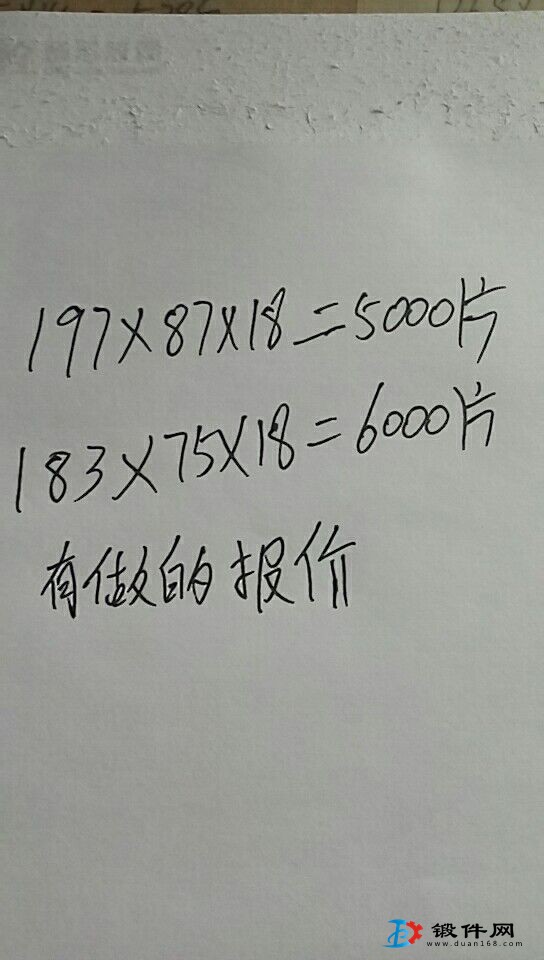 197×87×18=5000片
183×75×18=6000片
有做的报价
锻件网
www.duan168.com